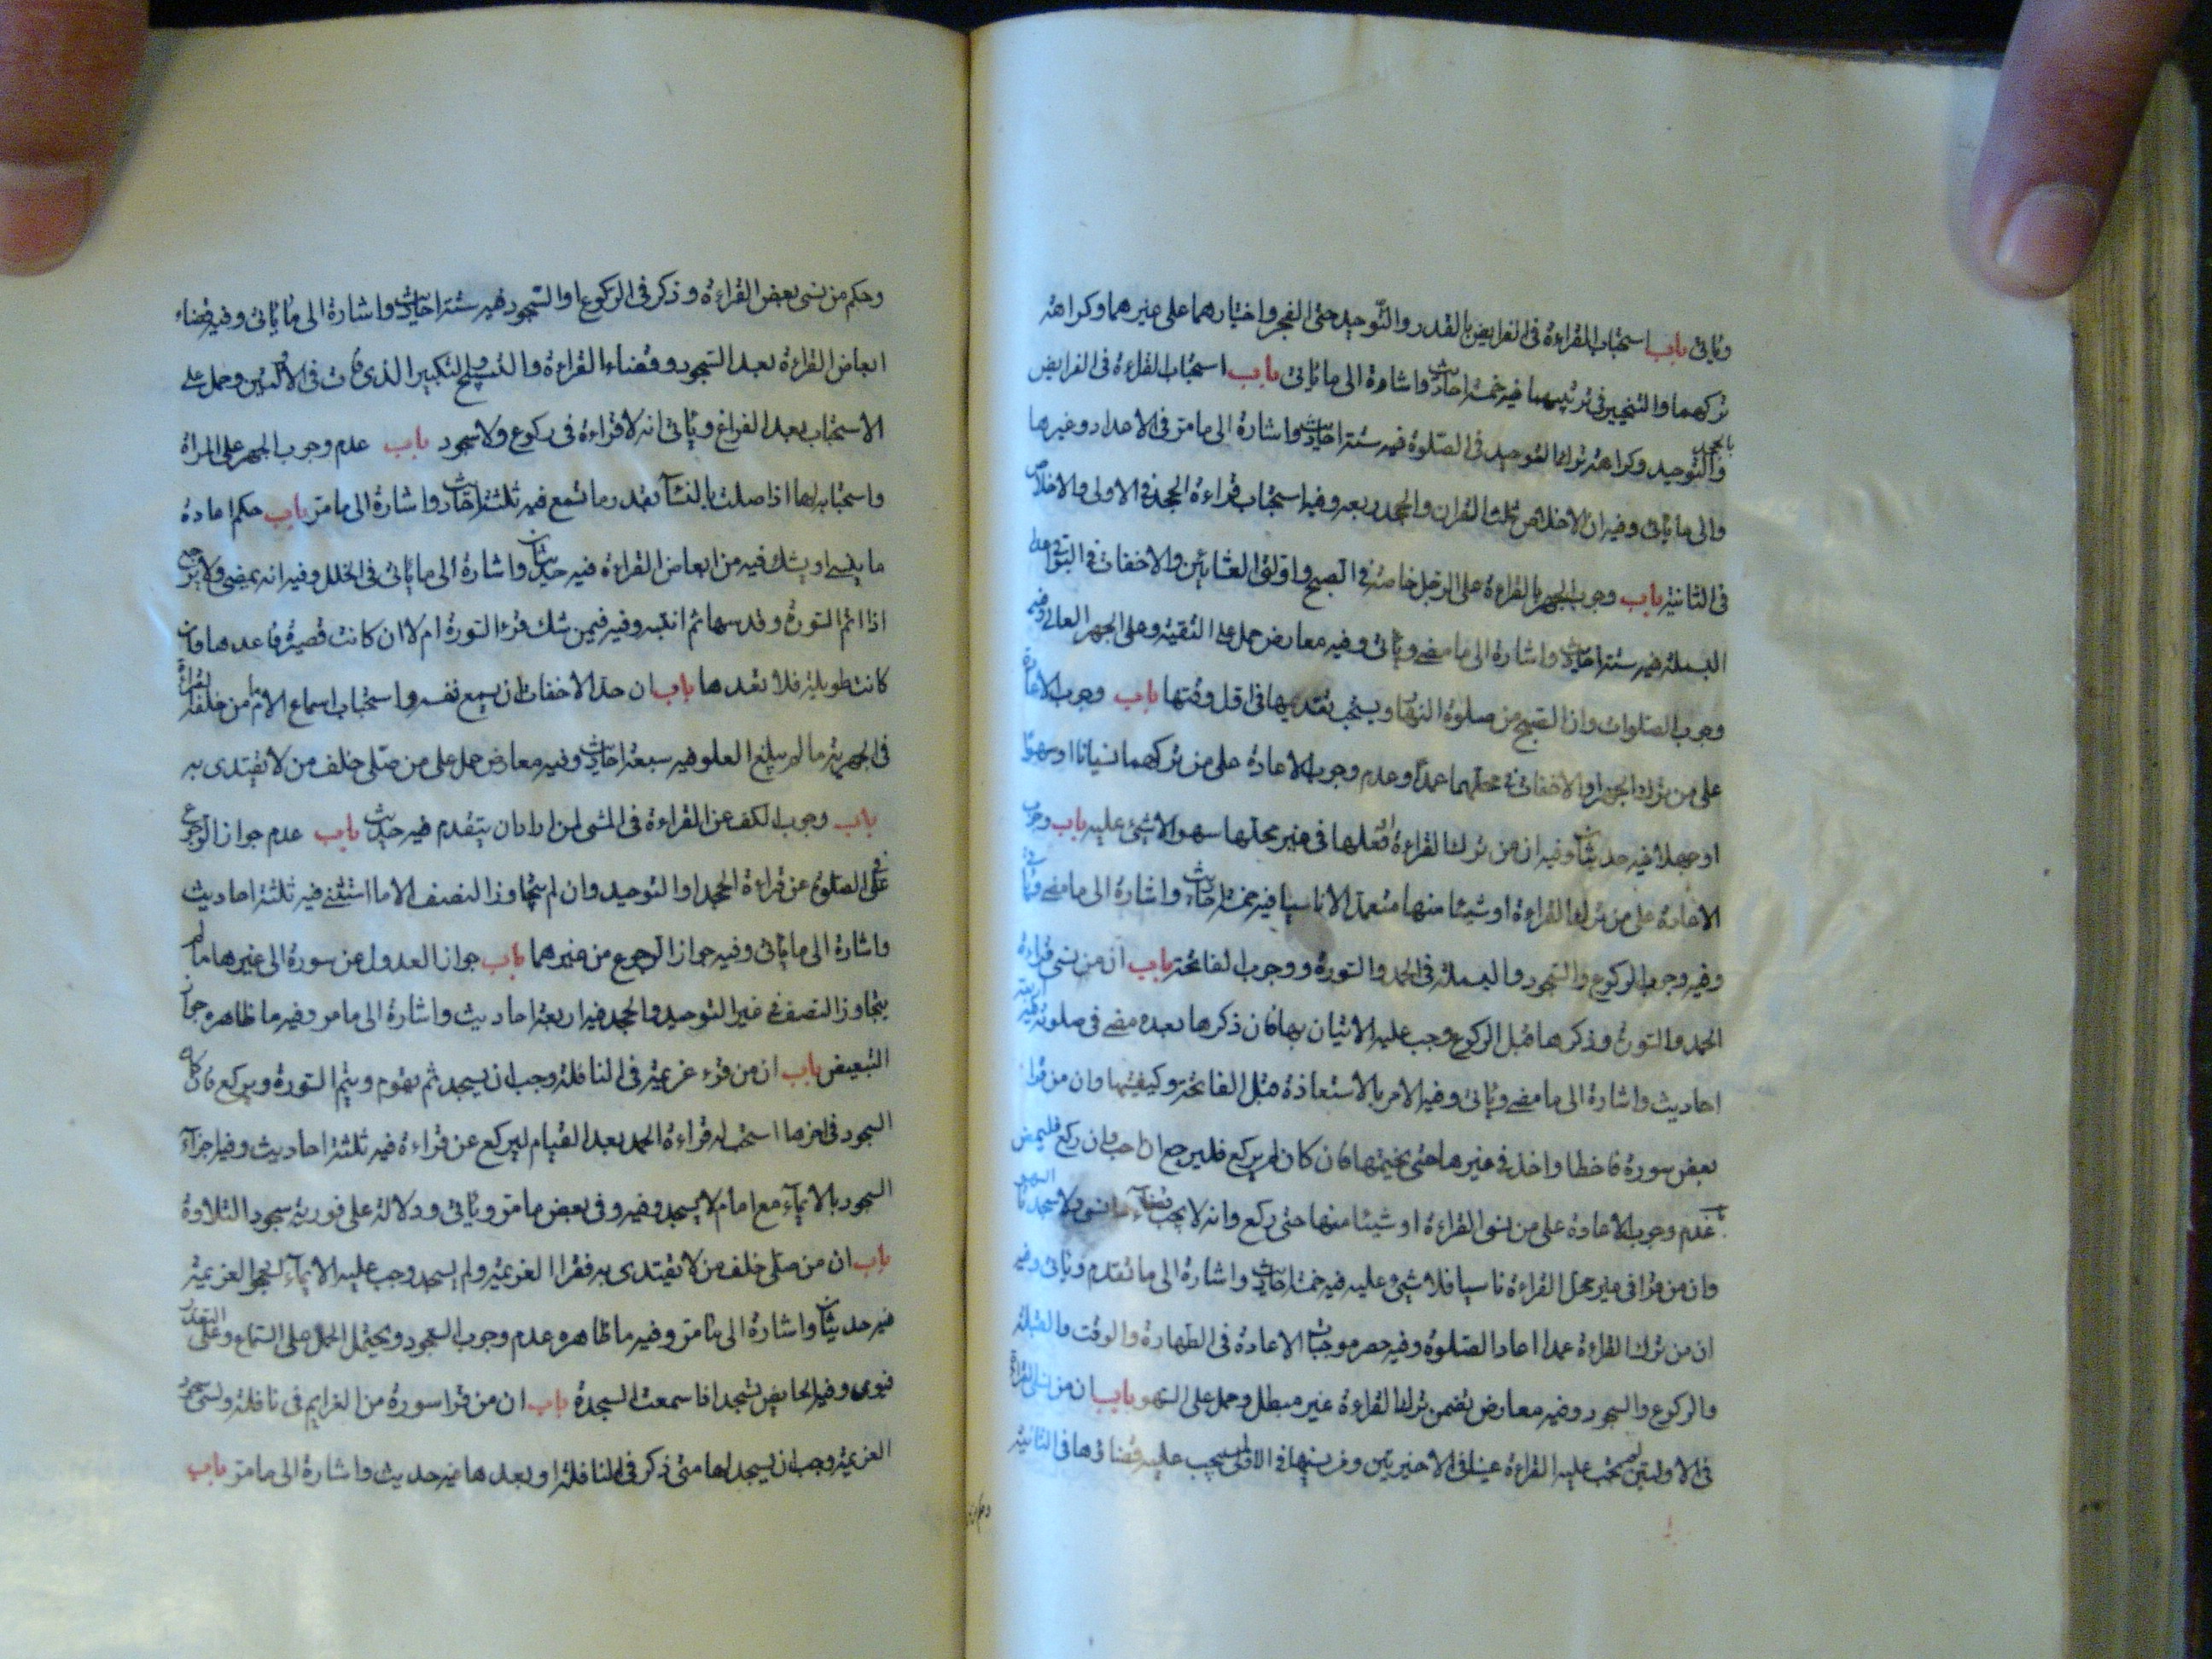 وياتى باب استحباب القراءة فى الفرايض بالقدر والتوحيد حتى الفجر واختيارهما على غيرهما وكراهة
تركهما والتخيير فى ترتيبهما فيه خمسة احاديث واشارة الى ما ياتى باب استحباب القراءة فى الفرايض
بالجحد والتوحيد وكراهة ترك التوحيد فى الصلوة فيه ستة احاديث واشارة الى ما مر فى الاعداد وغيرها
والى ما ياتى وفيه ان الاخلاص ثلث القران والجحد ربعه وفيه استحباب قراءة الجحد فى الاولى والاخلاص
فى الثانية باب وجوب الجهر بالقراءة على الرجل خاصة فى الصبح واولتى العشائين والاخفات فى البواقى عدا
البسملة فيه ستة احاديث واشارة الى ما مضى وياتى وفيه معارض حمل على التقية وعلى الجهر العالى وفيه
وجوب الصلوات وان الصبح من صلوة النهار ويستحب تقديمها فى اول وقتها باب وجوب الاعادة
على من ترك الجهر او الاخفات فى محلهما عمدا وعدم وجوب الاعادة على من تركهما نسيانا او سهوا
او جهلا فيه حديثان وفيه ان من ترك القراءة او فعلها فى غير محلها سهوا لا شىء عليه باب وجوب
الاعادة على من ترك القراءة او شيئا منها متعمدا لا ناسيا فيه خمسة احاديث واشارة الى ما مضى وياتى
وفيه وجوب الركوع والسجود والبسملة فى الحمد والسورة ووجوب الفاتحة باب ان من نسى قراءة
الحمد والسورة وذكرها قبل الركوع وجب عليه الاتيان بها فان ذكرها بعده مضى فى صلوته فيه اربعة
احاديث واشارة الى ما مضى وياتى وفيه الامر بالاستعاذة قبل الفاتحة وكيفيتها وان من قرا
بعض سورة فاخطا واخذ فى غيرها حتى يختمها فان كان لم يركع فليرجع ان احب وان ركع فليمض
باب عدم وجوب الاعادة على من نسى القراءة او شيئا منها حتى ركع وانه لا يجب قضاء ما نسى ولا سجدتا السهو
وان من قرا فى غير محل القراءة ناسيا فلا شىء عليه فيه خمسة احاديث واشارة الى ما تقدم وياتى وفيه
ان من ترك القراءة عمدا اعاد الصلوة وفيه حصر موجبات الاعادة فى الطهارة والوقت والقبلة
والركوع والسجود وفيه معارض تضمن ترك القراءة غير مبطل وحمل على السهو باب ان من نسى القراءة
فى الاولتين لم يجب عليه القراءة عينا فى الاخيرتين ومن نسيها فى الاولى يستحب عليه قضاؤها فى الثانية
وحكم من نسى بعض القراءة وذكر فى الركوع او السجود فيه ستة احاديث واشارة الى ما ياتى وفيه قضاء
ابعاض القراءة بعد السجود وقضاء القراءة والتسبيح والتكبير الذى فات فى الاولتين وحمل على
الاستحباب بعد الفراغ وياتى انه لا قراءة فى ركوع ولا سجود باب عدم وجوب الجهر على المراة
واستحبابه لها اذا صلت بالنساء بقدر ما تسمع فيه ثلثة احاديث واشارة الى ما مر باب حكم اعادة
ما ينسى او يشك فيه من ابعاض القراءة فيه حديثان واشارة الى ما ياتى فى الخلل وفيه انه يمضى ولا يرجع
اذا اتم السورة وقد سها ثم انتبه وفيه فيمن شك قرء السورة ام لا ان كانت قصيرة فاعدها وان
كانت طويلة فلا تعدها باب ان حد الاخفات ان يسمع نفسه واستحباب اسماع الامام من خلفه القراءة
فى الجهرية ما لم يبلغ العلو فيه سبعة احاديث وفيه معارض حمل على من صلى خلف من لا يقتدى به
باب وجوب الكف عن القراءة فى المشى لمن اراد ان يتقدم فيه حديث باب عدم جواز الرجوع
فى الصلوة عن قراءة الجحد او التوحيد وان لم يتجاوز النصف الا ما استثنى فيه ثلثة احاديث
واشارة الى ما ياتى وفيه جواز الرجوع من غيرهما باب جواز العدول عن سورة الى غيرها ما لم
يتجاوز النصف فى غير التوحيد والجحد فيه اربعة احاديث واشارة الى ما مر وفيه ما ظاهره جواز
التبعيض باب ان من قرء عزيمة فى النافلة وجب ان يسجد ثم يقوم ويتم السورة ويركع فان كان
السجود فى اخرها استحب له قراءة الحمد بعد القيام ليركع عن قراءة فيه ثلثة احاديث وفيه اجزاء
السجود بالايماء مع امام لا يسجد وفيه وفى بعض ما مر وياتى دلالة على فورية سجود التلاوة
باب ان من صلى خلف من لا يقتدى به فقرا العزيمة ولم يسجد وجب عليه الايماء لسجود العزيمة
فيه حديثان واشارة الى ما مر وفيه ما ظاهره عدم وجوب السجود ويحتمل الحمل على السماع وعلى التعذر
فيومى وفيه الحايض تسجد اذا سمعت السجدة باب ان من قرا سورة من العزايم فى نافلة ونسى سجود
العزيمة وجب ان يسجد لها متى ذكر فى النافلة او بعدها فيه حديث واشارة الى ما مر باب